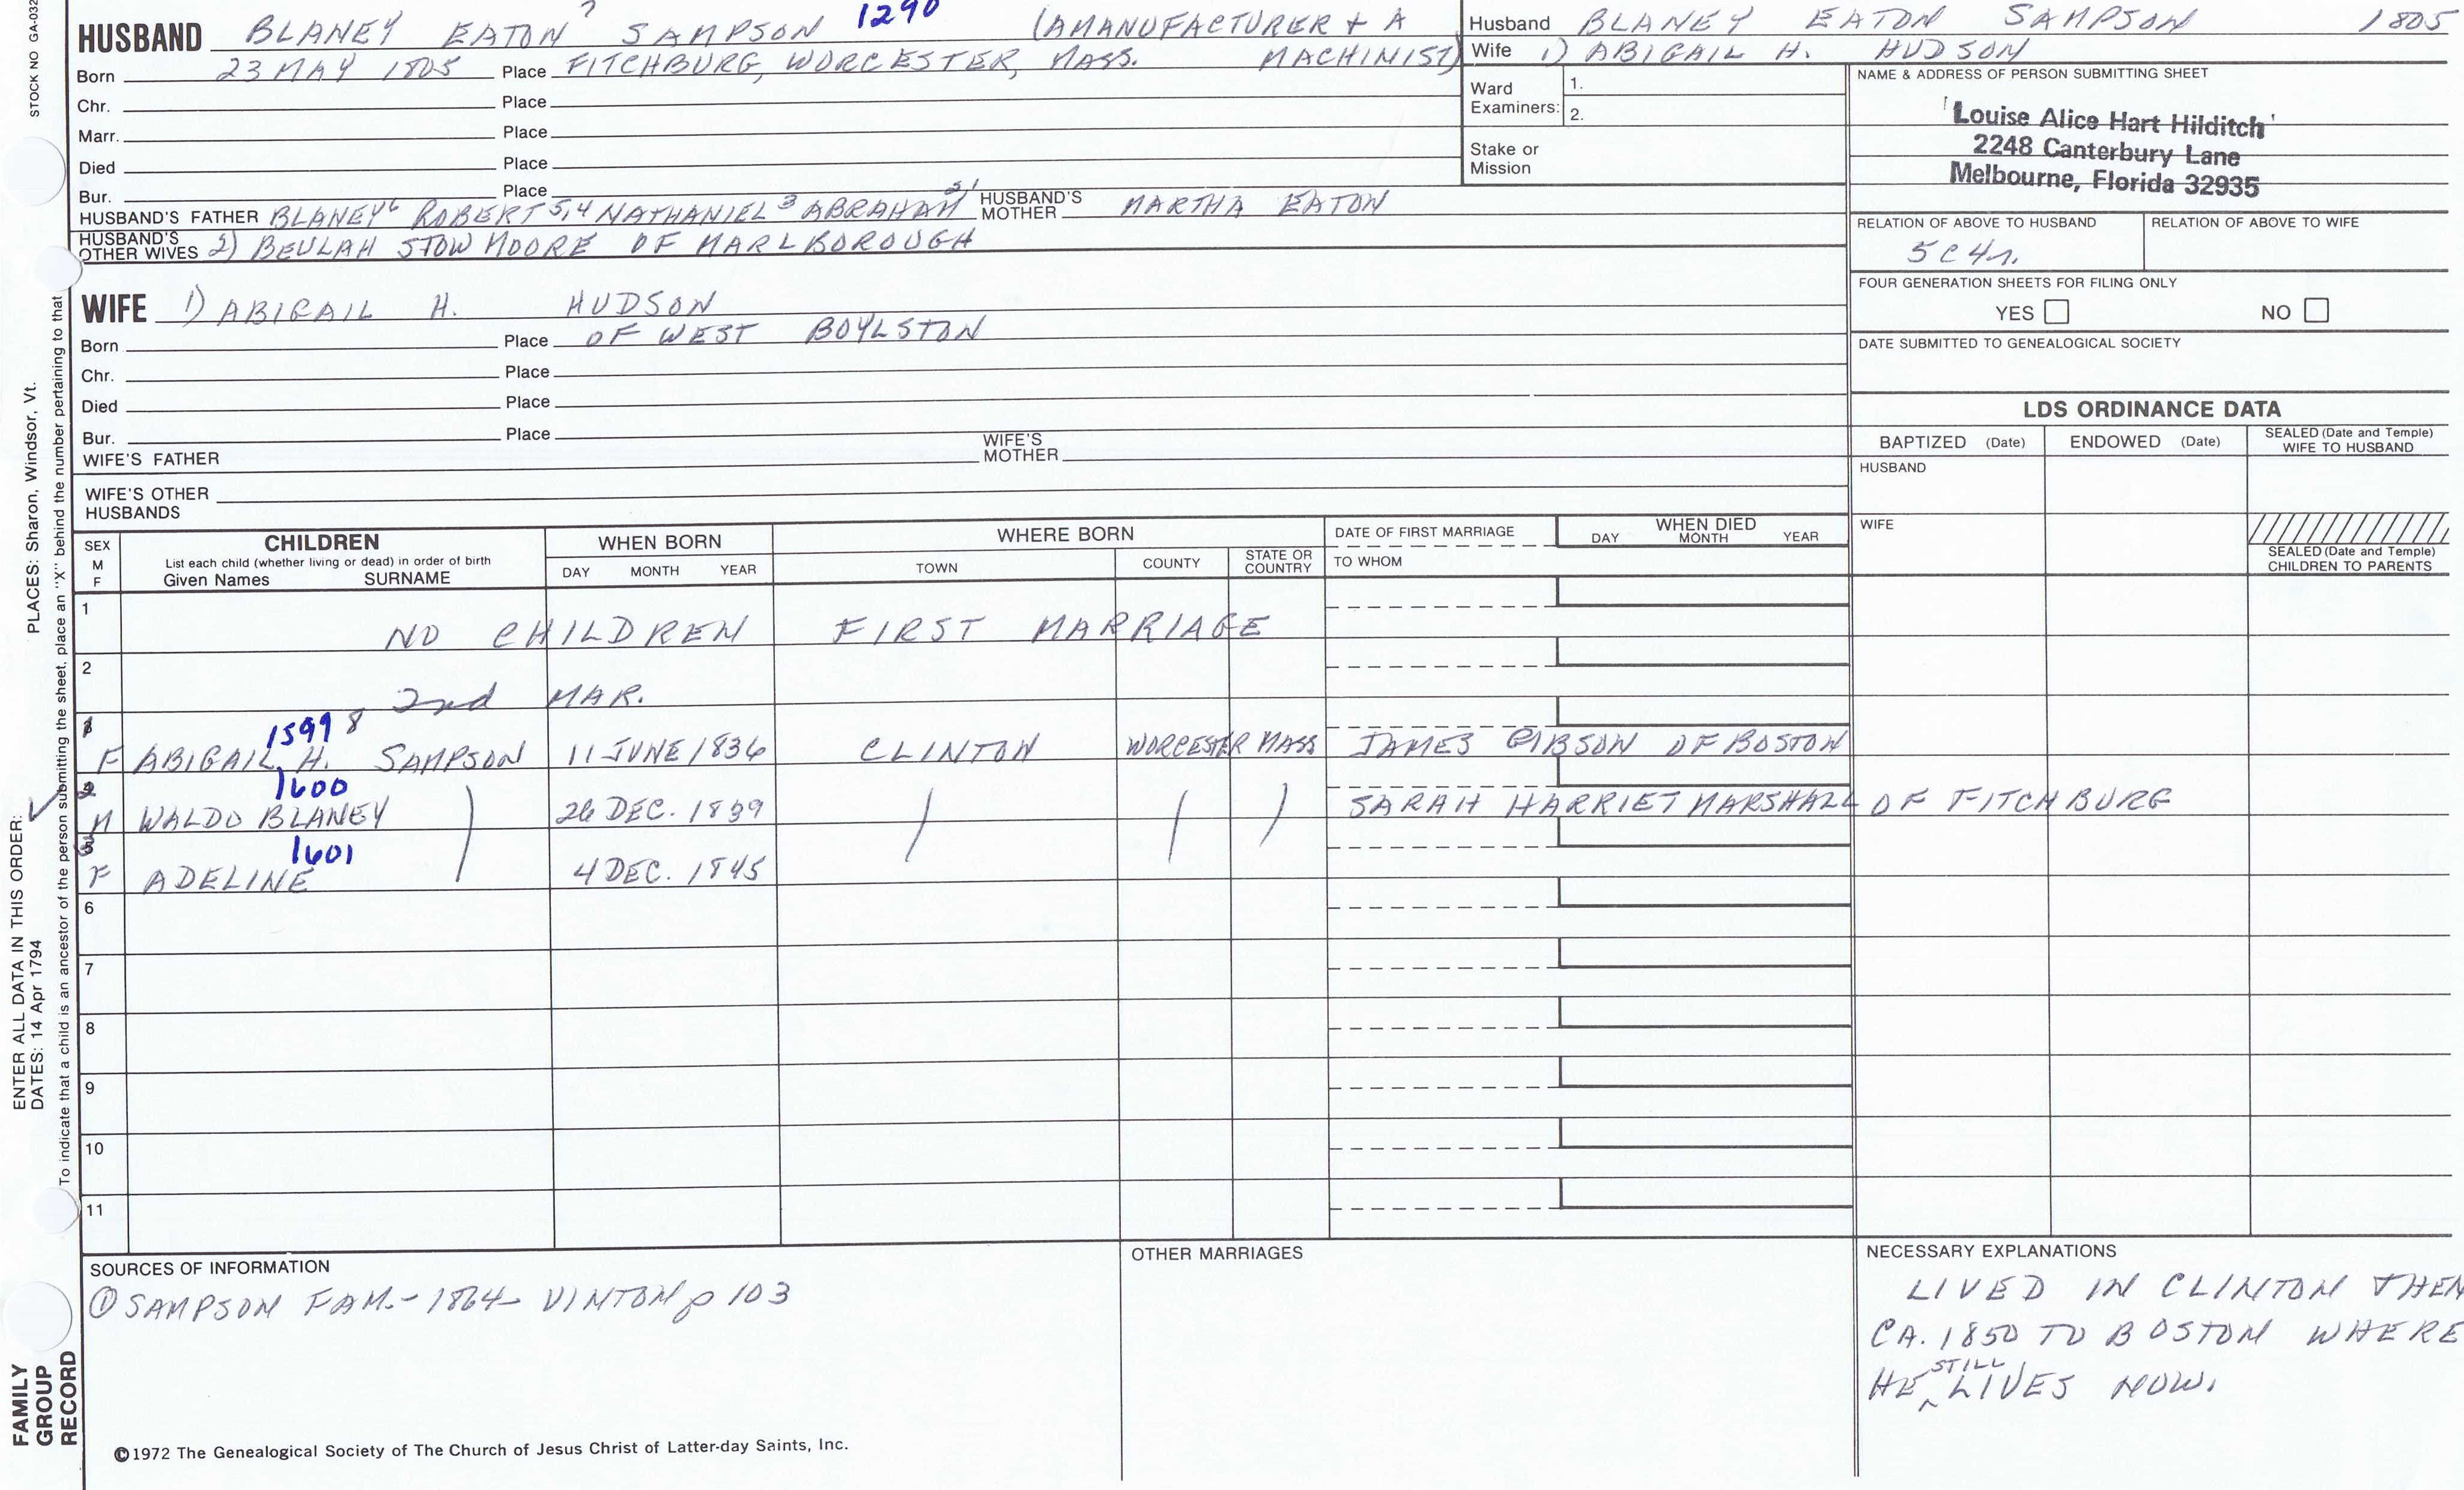 STOCK NO GA-032
HUSBAND BLANEY EATON 7 SAMPSON 1290 (A MANUFACTURER + A
MACHINIST)
Born 23 MAY 1805 Place FITCHBURG, WORCESTER, MASS.
Chr. Place
Marr. Place
Died Place
Bur. Place
HUSBAND'S FATHER BLANEY6 ROBERT5,4 NATHANIEL3 ABRAHAM2,1 HUSBAND'S MOTHER MARTHA EATON
HUSBAND'S OTHER WIVES 2) BEULAH STOW MOORE OF MARLBOROUGH
Husband BLANEY EATON SAMPSON 1805
Wife 1) ABIGAIL H. HUDSON
Ward Examiners: 1.
2.
Stake or Mission
NAME & ADDRESS OF PERSON SUBMITTING SHEET
Louise Alice Hart Hilditch
2248 Canterbury Lane
Melbourne, Florida 32935
RELATION OF ABOVE TO HUSBAND RELATION OF ABOVE TO WIFE
5C4r.
FOUR GENERATION SHEETS FOR FILING ONLY
YES NO
DATE SUBMITTED TO GENEALOGICAL SOCIETY
WIFE 1) ABIGAIL H. HUDSON
Born Place OF WEST BOYLSTON
Chr. Place
Died Place
Bur. Place
WIFE'S FATHER WIFE'S MOTHER
WIFE'S OTHER HUSBANDS
LDS ORDINANCE DATA
BAPTIZED (Date) ENDOWED (Date) SEALED (Date and Temple) WIFE TO HUSBAND
HUSBAND
WIFE
SEALED (Date and Temple) CHILDREN TO PARENTS
SEX M F
CHILDREN
List each child (whether living or dead) in order of birth
Given Names SURNAME
WHEN BORN
DAY MONTH YEAR
WHERE BORN
TOWN COUNTY STATE OR COUNTRY
DATE OF FIRST MARRIAGE
TO WHOM
WHEN DIED
DAY MONTH YEAR
1 NO CHILDREN FIRST MARRIAGE
2 2nd MAR.
1 1599 8
F ABIGAIL H. SAMPSON 11 JUNE 1836 CLINTON WORCESTER MASS JAMES GIBSON OF BOSTON
2 1600
M WALDO BLANEY ) 26 DEC. 1839 ) ) ) SARAH HARRIET MARSHALL OF FITCHBURG
3 1601
F ADELINE 4 DEC. 1845
6
7
8
9
10
11
SOURCES OF INFORMATION
① SAMPSON FAM. - 1864 - VINTON p 103
OTHER MARRIAGES
NECESSARY EXPLANATIONS
LIVED IN CLINTON THEN
CA. 1850 TO BOSTON WHERE
HE STILL LIVES NOW.
©1972 The Genealogical Society of The Church of Jesus Christ of Latter-day Saints, Inc.
FAMILY GROUP RECORD
ENTER ALL DATA IN THIS ORDER:
DATES: 14 Apr 1794 PLACES: Sharon, Windsor, Vt.
To indicate that a child is an ancestor of the person submitting the sheet, place an "X" behind the number pertaining to that